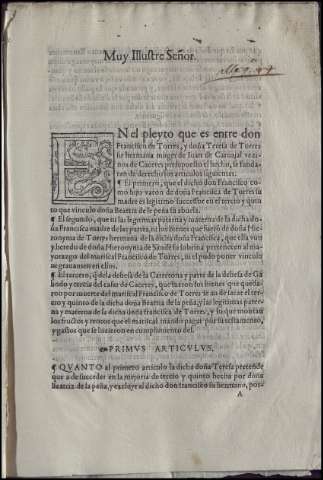 Muy Illustre Señor.
EN el pleyto que es entre don
Francisco de Torres, y doña Teresa de Torres
su hermana muger de Juan de Caruajal vezi-
nos de Caceres presupuesto el hecho, se funda-
ren de derecho los articulos siguientes.
¶ El primero, que el dicho don Francisco co-
mo hijo varon de doña Francisca de Torres su
madre es legitimo successor en el tercio y quin
to que vinculo doña Beatriz de la peña su abuela.
¶ El segundo, que ni las legitimas paterna y materna de la dicha do-
ña Francisca madre de las partes, ni los bienes que fueron de doña Hie-
ronyma de Torres hermana de la dicha doña Francisca, que ella vuo
por muerte de doña Hieronyma de Sande su sobrina pertenecen al ma-
yorazgo del mariscal Francisco de Torres, ni el pudo poner vinculo
ni grauamen en ellos.
¶ El tercero, que de la defesa de la Carretona y parte de la defesa de Ga-
lindo y renta del casar de Caceres, que fueron los bienes que queda-
ron por muerte del mariscal Francisco de Torres se an de sacar el ter-
cio y quinto de la dicha doña Beatriz de la peña, y las legitimas pater-
na y materna de la dicha doña Francisca de Torres, y lo que montan
los frutos y rentos que el mariscal mando pagar por su testamento,
y gastos que se hizieron en cumplimiento del.
PRIMUS ARTICULUS.
¶ QVANTO al primero articulo la dicha doña Teresa pretende
que a de succeder en la mejoria de tercio y quinto hecha por doña
Beatriz de la peña, y excluye al dicho don Francisco su hermano, por-
A